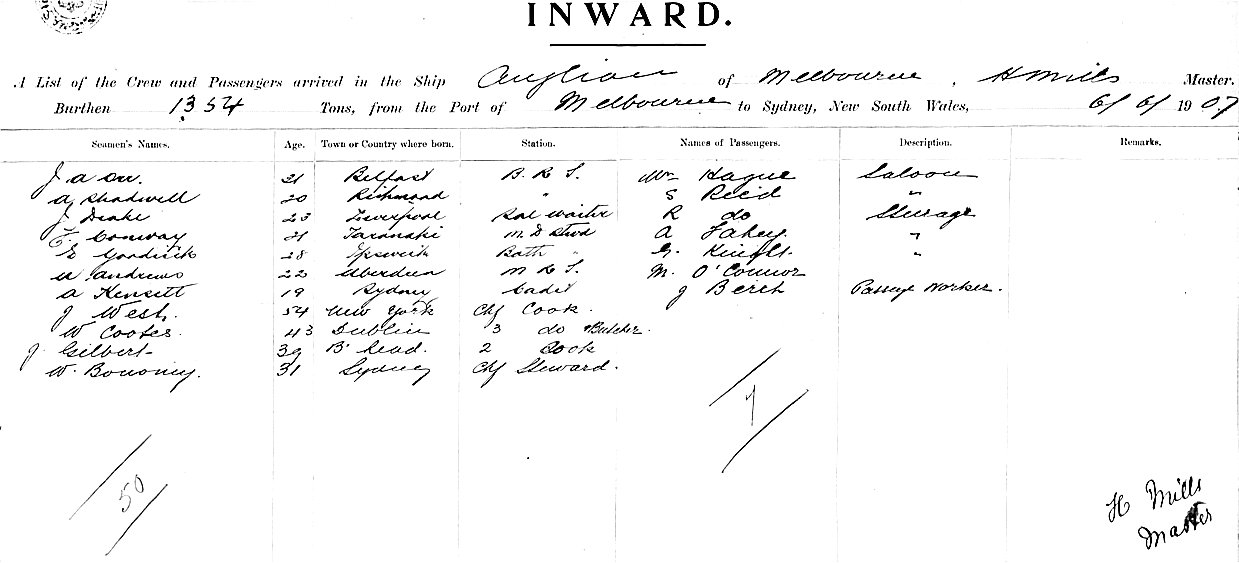 INWARD.
A List of the Crew and Passengers arrived in the Ship Anglian of Melbourne, H Mills Master.
Burthen 1354 Tons, from the Port of Melbourne to Sydney, New South Wales, 6/6/1907
Seamen's Names. Age. Town or Country where born. Station. Names of Passengers. Description. Remarks.
J A Orr. 21 Belfast B. R. S. Mr Hague Saloon
A Shadwell 20 Richmond " S Reid "
J Drake 23 Liverpool Sal waiter R do Steerage
F. Conway 21 Taranaki M. D Stwd A Fahey. "
E Goodrick 28 Ipswich Bath " G. Knight. "
W Andrews 22 Aberdeen M R S. M. O'Connor
A Kensett 19 Sydney Cadet J Berch Passage Worker.
J West. 54 New York Chf Cook.
W Cootes. 43 Dublin 3 do Butcher.
J Gilbert 39 B'head. 2 Cook
W. Bonomy. 31 Sydney Chf Steward.
7
50
H Mills
Master